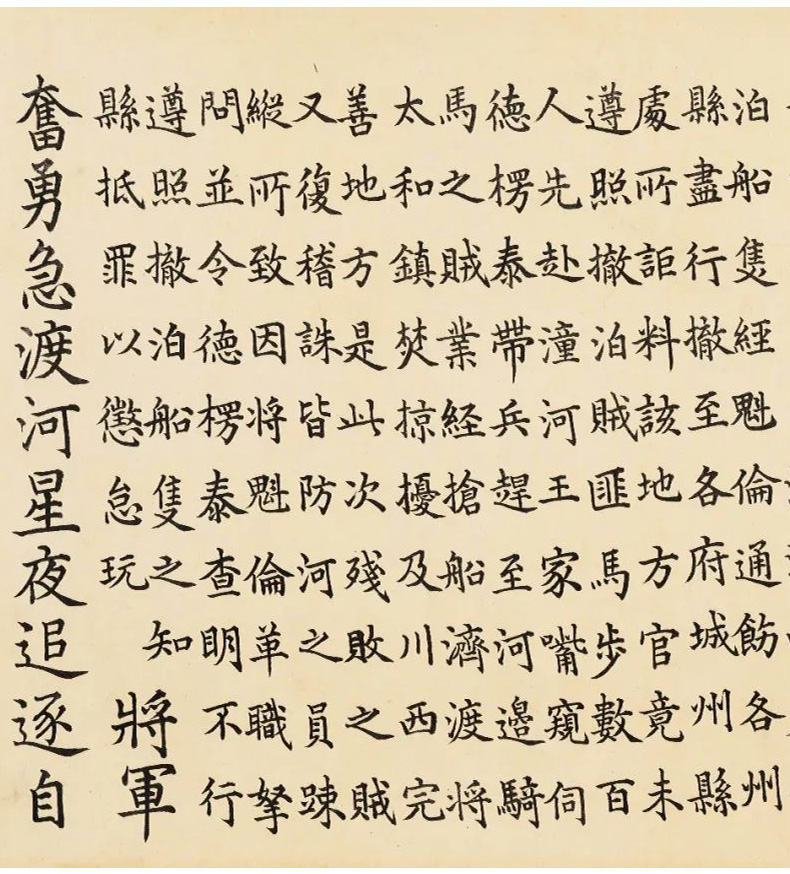 泊船隻經魁倫通飭各州
縣盡行撤至各府城州縣
處所詎料該地方官竟未
遵照撤泊賊匪馬步數百
人先赴潼河王家嘴窺伺
德楞泰帶兵趕至河邊騎
馬之賊業經搶船濟渡將
太和鎮焚掠擾及川西完
善地方是此次殘敗之賊
又復稽誅皆防河之員踈
縱所致因將魁倫革職拏
問並令德楞泰查明不行
遵照撤泊船隻之知
縣抵罪以懲怠玩
將軍
奮勇急渡河星夜追逐自